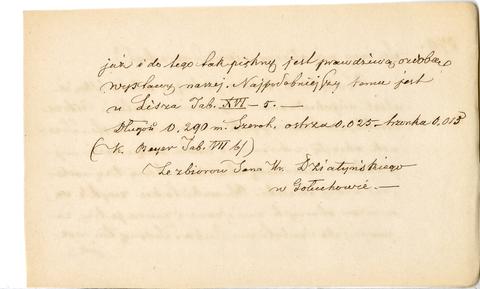 już i do tego tak piękny jest prawdziwą ozdobą
wystawy naszej. Najpodobniejszy temu jest
u Lisza Tab. XVI – 5. —
Długość 0.290 m. Szerok. ostrza 0.025 – trzonka 0.015
(K. Beyer Tab. VII b)
Ze zbiorów Jana Hr. Działyńskiego
w Gołuchowie. —